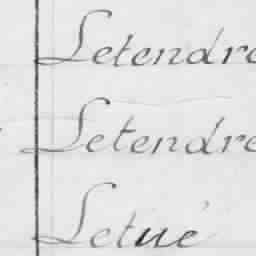 Letendre
Letendre
Letué